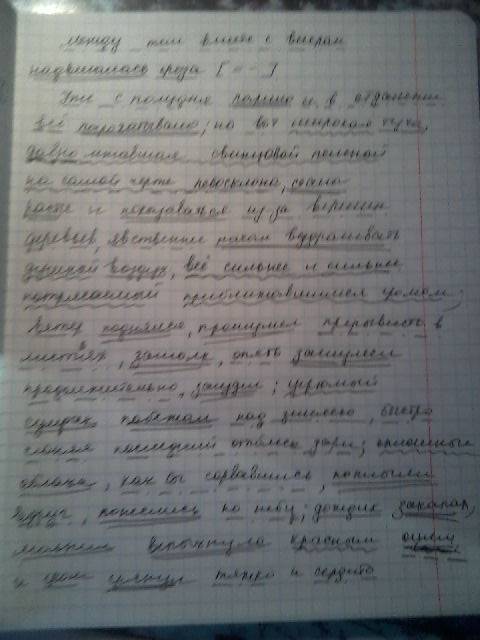 Между тем вместе с вечером
надвигалась гроза [= -]
Уже с полудня парило и в отдалении
всё погрохатывало; но вот широкая туча,
давно лежавшая свинцовой пеленой
на самой черте небосклона, стала
расти и показываться из-за вершин
деревьев, явственнее начал вздрагивать
душный воздух, всё сильнее и сильнее
потрясаемый приближавшимся громом;
Ветер поднялся, прошумел прерывисто в
листьях, замолк, опять зашумел
продолжительно, загудел; угрюмый
сумрак побежал над землёю, быстро
сгоняя последний отблеск зари; сплошные
облака, как бы сорвавшись, поплыли
вдруг, понеслись по небу; дождик закапал,
молния вспыхнула красным огнём
и гром грянул тяжко и сердито